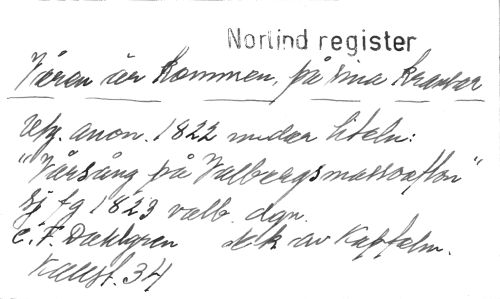 Norlind register
Våren är kommen, på sina kransar
utg. anon. 1822 under titeln:
"Vårsång på Valborgsmässoafton"
sj fg 1823 valb. dgn.
C. F. Dahlgren dik av Kapfelm.
Källst. 34